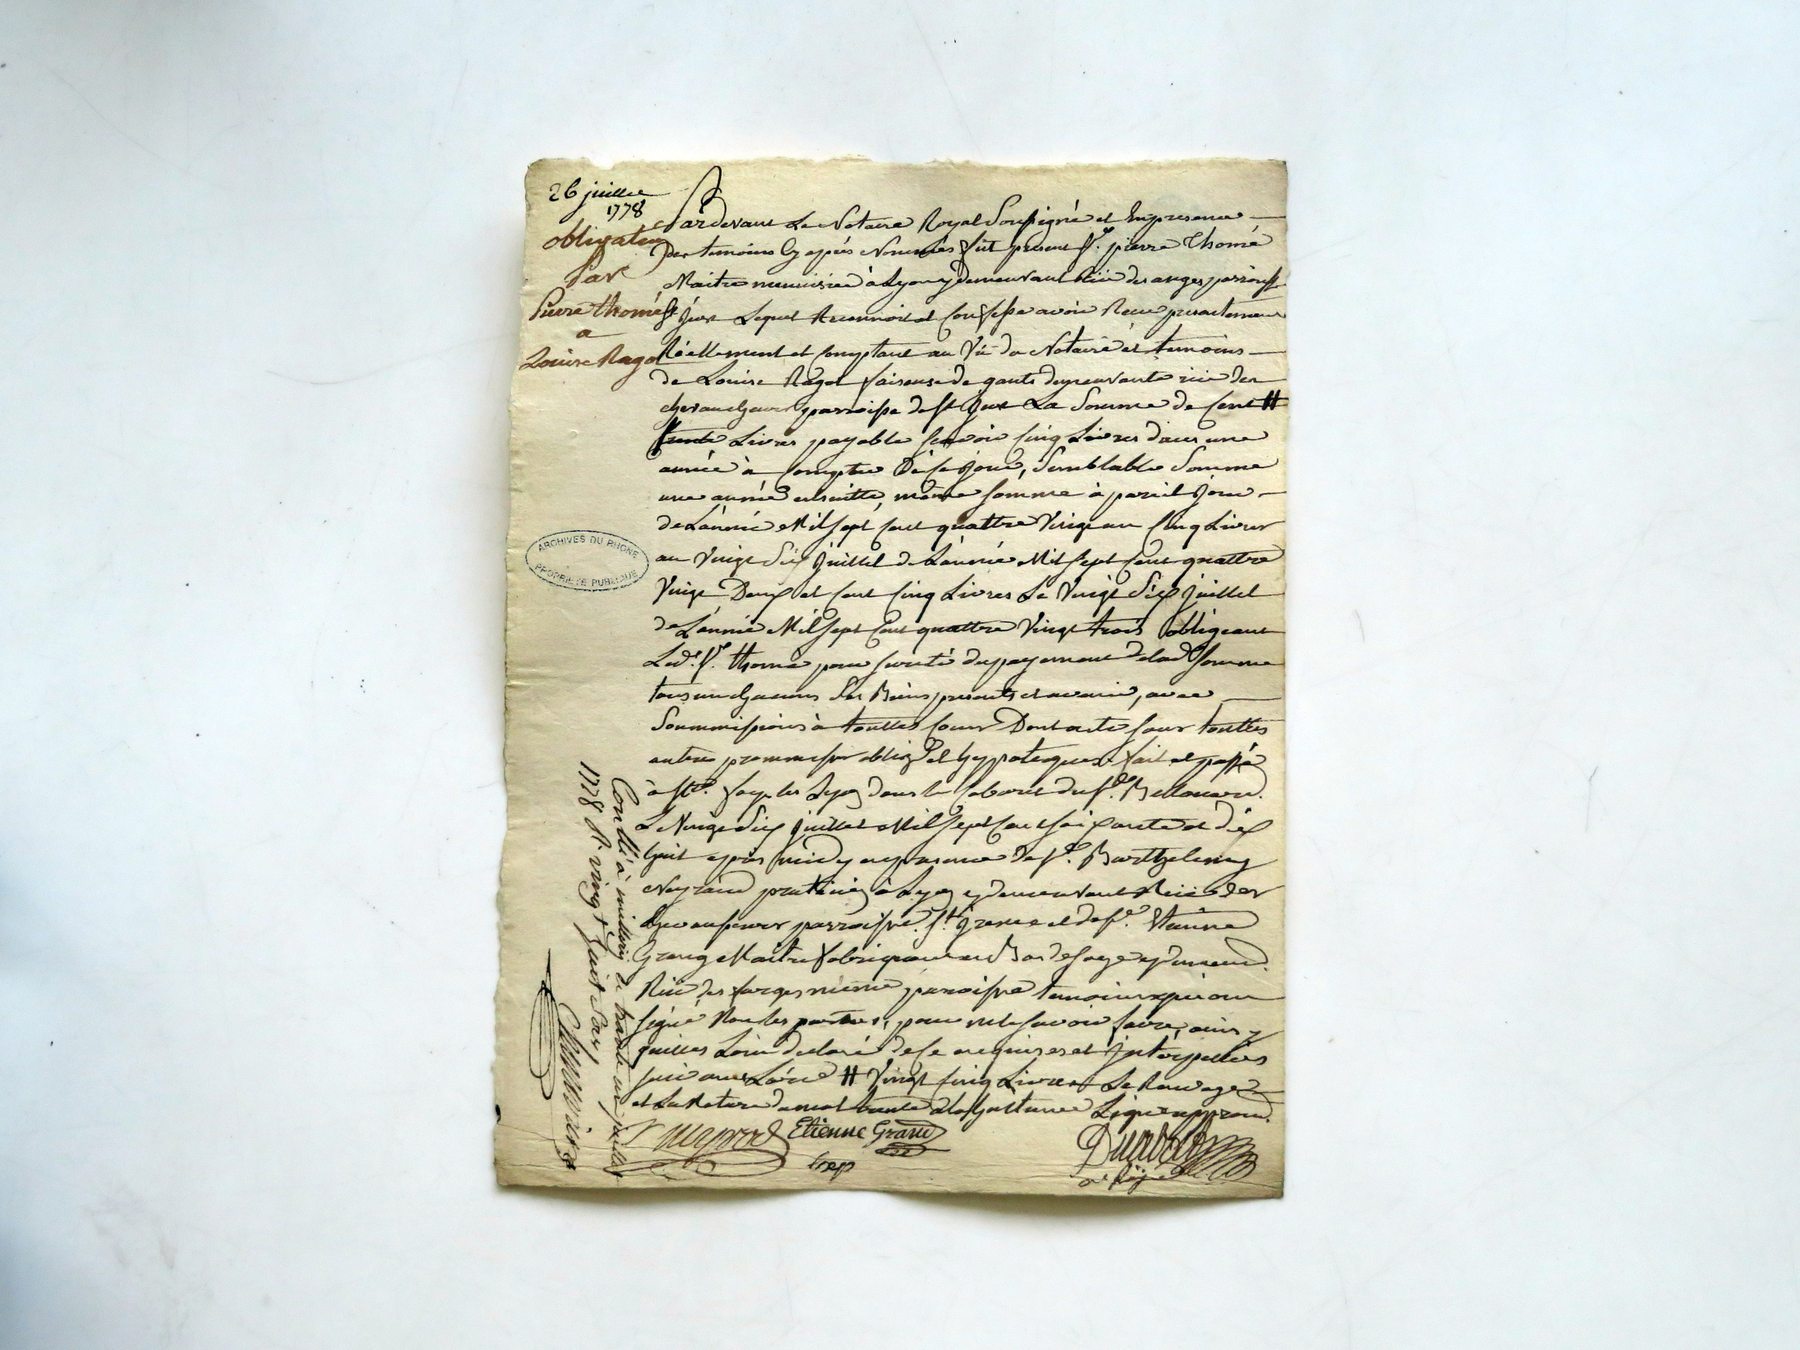 26 juillet
1778
obligation
Par
Pierre thomé
a
Louise Ragot
Pardevant Le Notaire Royal Soussigné et En presence
Des temoins Cy après Nommés fut present Sr. pierre Thomé
Maitre menuisier à Lyon y demeurant Rüe des anges parroisse
St Just Lequel Reconnoit et Confesse avoir Receu presentement
Réellement et Comptant au Vû du Notaire et temoins
de Louise Ragot faiseuse de gants demeurante rüe des
parroisse de St Just La Somme de Cent #
trente Livres payable sçavoir Cinq Livres dans une
année à Compter De Ce jour, Semblable Somme
une année ensuitte, même Somme à pareil jour
de L'année Mil Sept Cent quattre Vingt un Cinq Livres
au Vingt Six Juillet de L'année Mil Sept Cent quattre
Vingt Deux et Cent Cinq Livres Le Vingt Six Juillet
de L'année Mil Sept Cent quattre Vingt trois obligeant
Led. Sr. thomé pour sureté du payement de lad. Somme
tous un Chacuns Ses Biens presents et avenir, avec
Soummissions à touttes Cours Dont acte Sous touttes
autres promesses oblig. et hypoteques fait et passé
à Ste. foy les Lyon dans le Cabaret du Sr.
Le Vingt Six Juillet Mil Sept Cent Soixante et dix
huit après midy en presence de Sr. Barthelemy
praticien à Lyon y demeurant Rüe des
parroisse St. Irenée et de Sr. Etienne
Grand Maitre fabriquant en Bas de soye y demeurt.
Rüe des farges même parroisse temoins qui ont
signé Non les parties, pour ne le sçavoir faire, ainsy
qu'elles L'ont declaré de Ce enquises et Interpellées
suivant L'ord. # Vingt Cinq Livres Le Renvoy
et La Rature du mot trente à la huitieme Ligne approuvé.
Etienne Grand
Controllé à le trente un juillet
1778 R. vingt huit sols
ARCHIVES DU RHONE
PROPRIÉTÉ PUBLIQUE